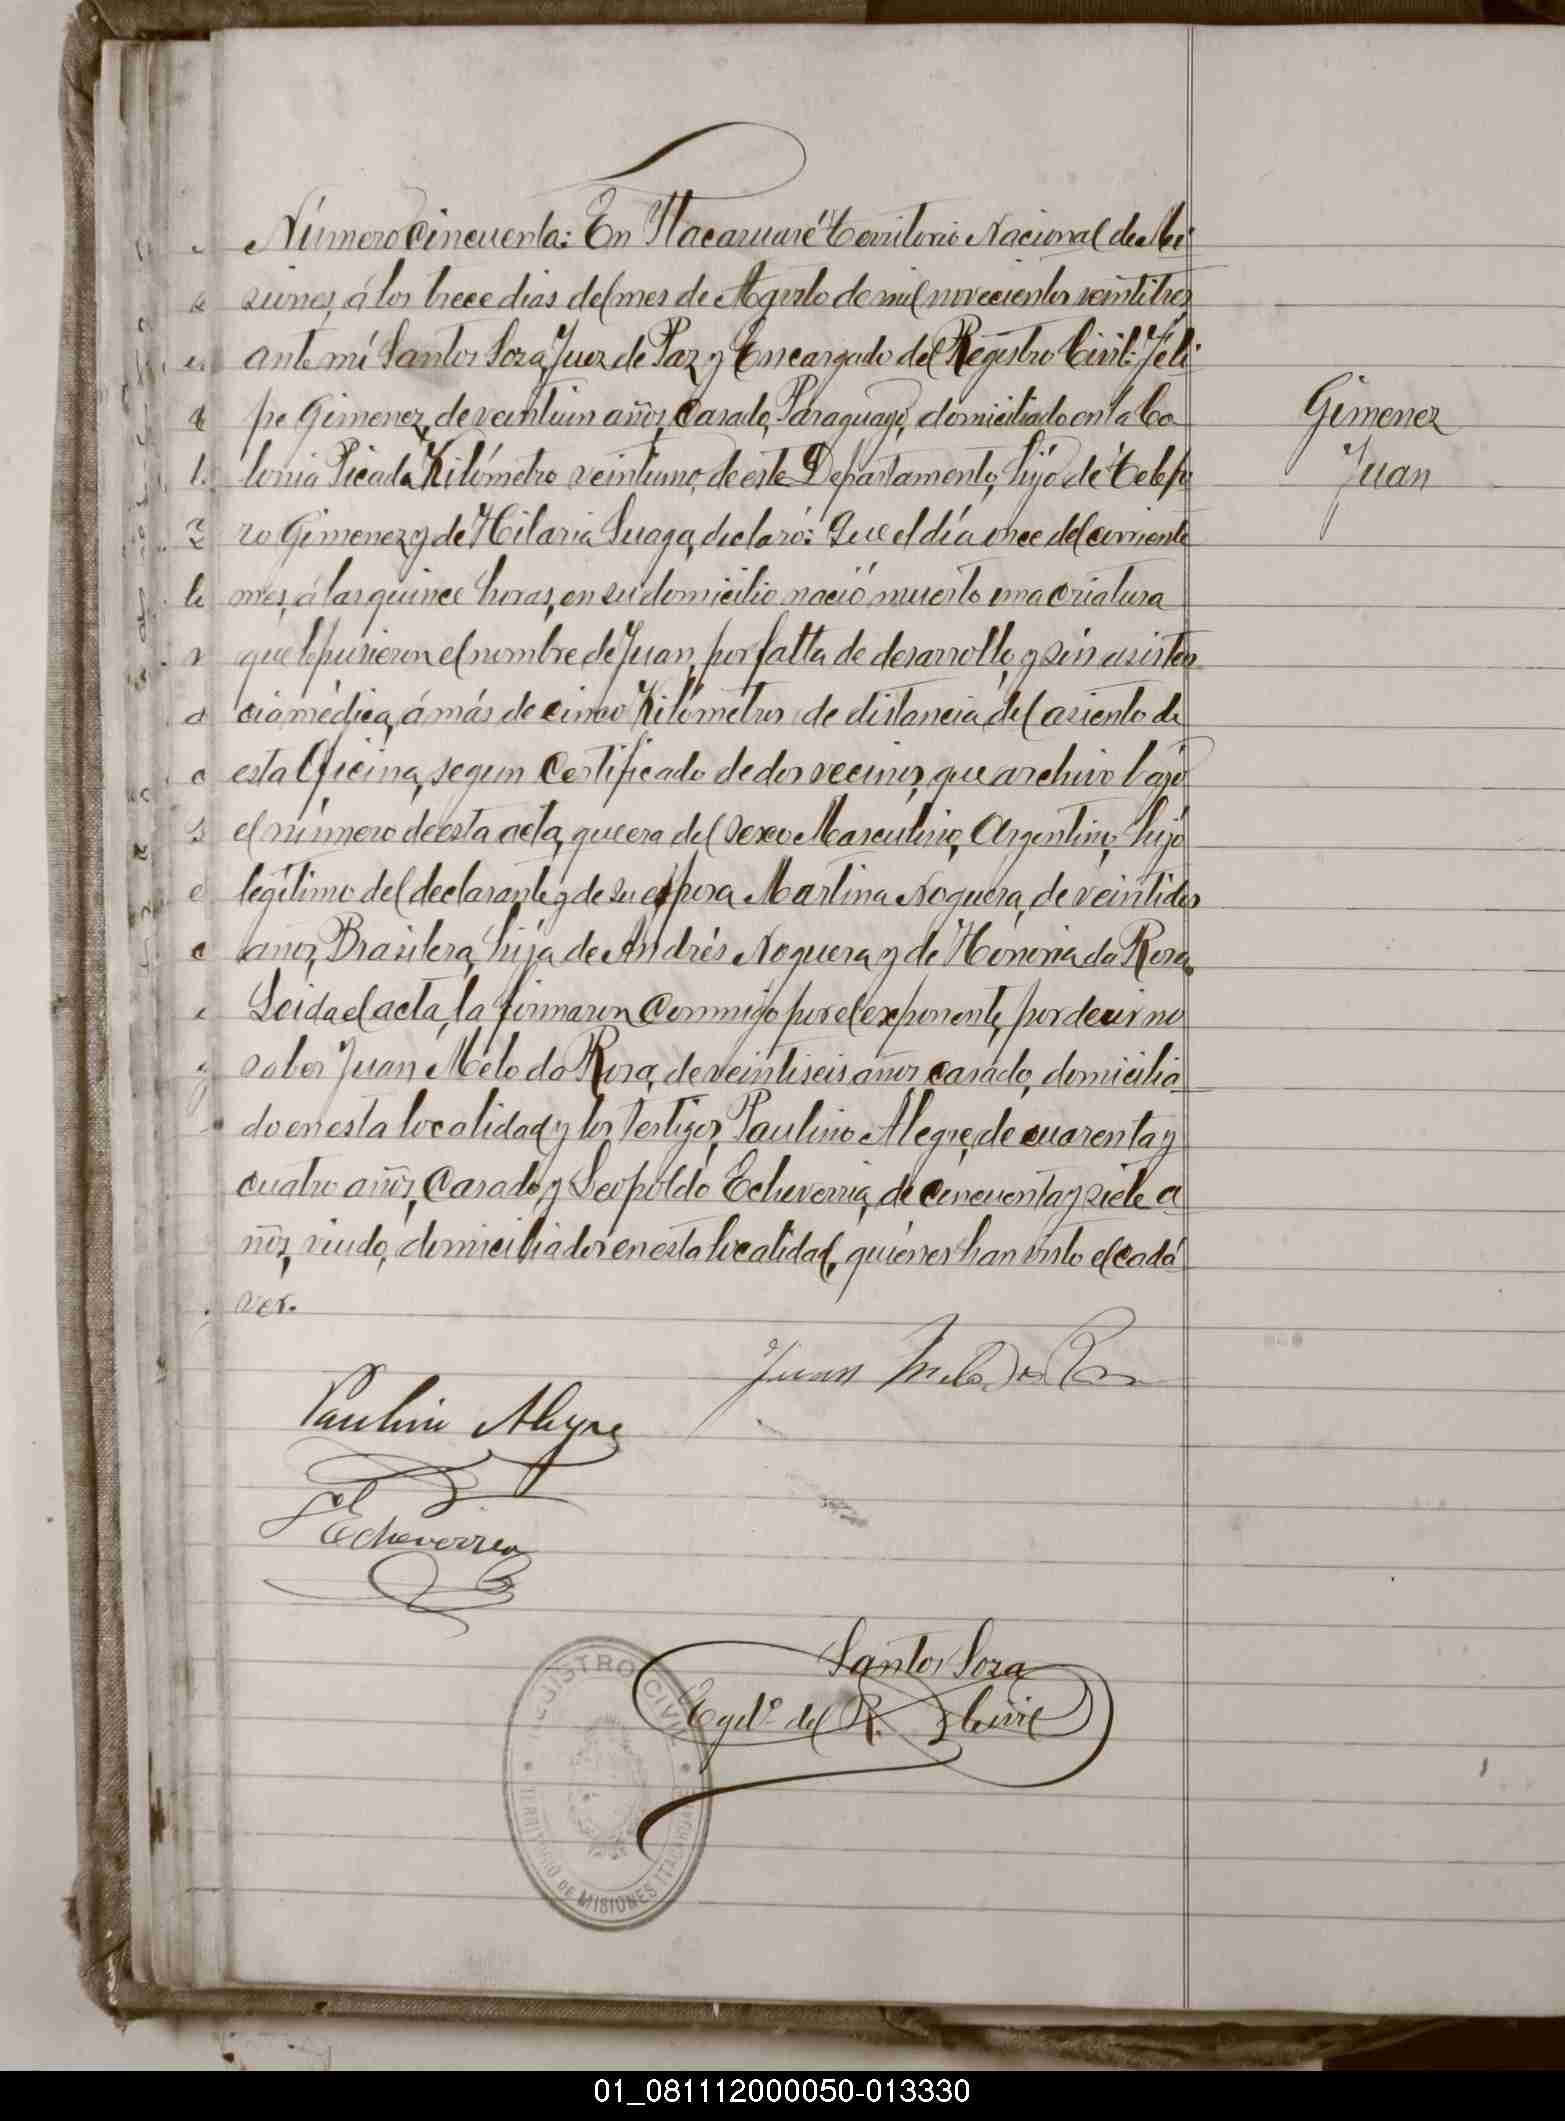 Número Cincuenta: En Itacaruaré Territorio Nacional de Mi
siones, á los trece dias del mes de Agosto de mil novecientos veintitres
ante mí Santos Soza, Juez de Paz y Encargado del Registro Civil: Feli
pe Gimenez, de veintiun años, Casado, Paraguayo, domiciliado en la Co
lonia Picada Kilómetro veintiuno, de este Departamento, hijo de Telefo
ro Gimenez y de Hilaria Luaga, declaró: Que el día once del corriente
mes, á las quince horas, en su domicilio nació muerto una criatura
que le pusieron el nombre de Juan, por falta de desarrollo, y sin asisten
cia médica, á más de cinco Kilómetros de distancia del asiento de
esta Oficina, segun Certificado de dos vecinos, que archivo bajo
el número de esta acta, que era del sexo Masculino, Argentino, hijo
legítimo del declarante y de su esposa Martina Noguera, de veintidos
años, Brasilera, hija de Andrés Noguera y de Honoria da Rosa.
Leida el acta, la firmaron Conmigo por el exponente, por decir no
saber Juan Melo da Rosa, de veintiseis años, casado, domicilia-
do en esta localidad y los testigos, Paulino Alegre, de cuarenta y
cuatro años, Casado y Leopoldo Echeverria, de cincuenta y siete a
ños, viudo, domiciliados en esta localidad, quiénes han visto el cadá
ver.
Gimenez
Juan
Juan Melo da Rosa
Paulino Alegre
Echeverria
Santos Soza
Egdo. del R. Civil
REGISTRO CIVIL
TERRITORIO DE MISIONES ITACARUARE
01_081112000050-013330